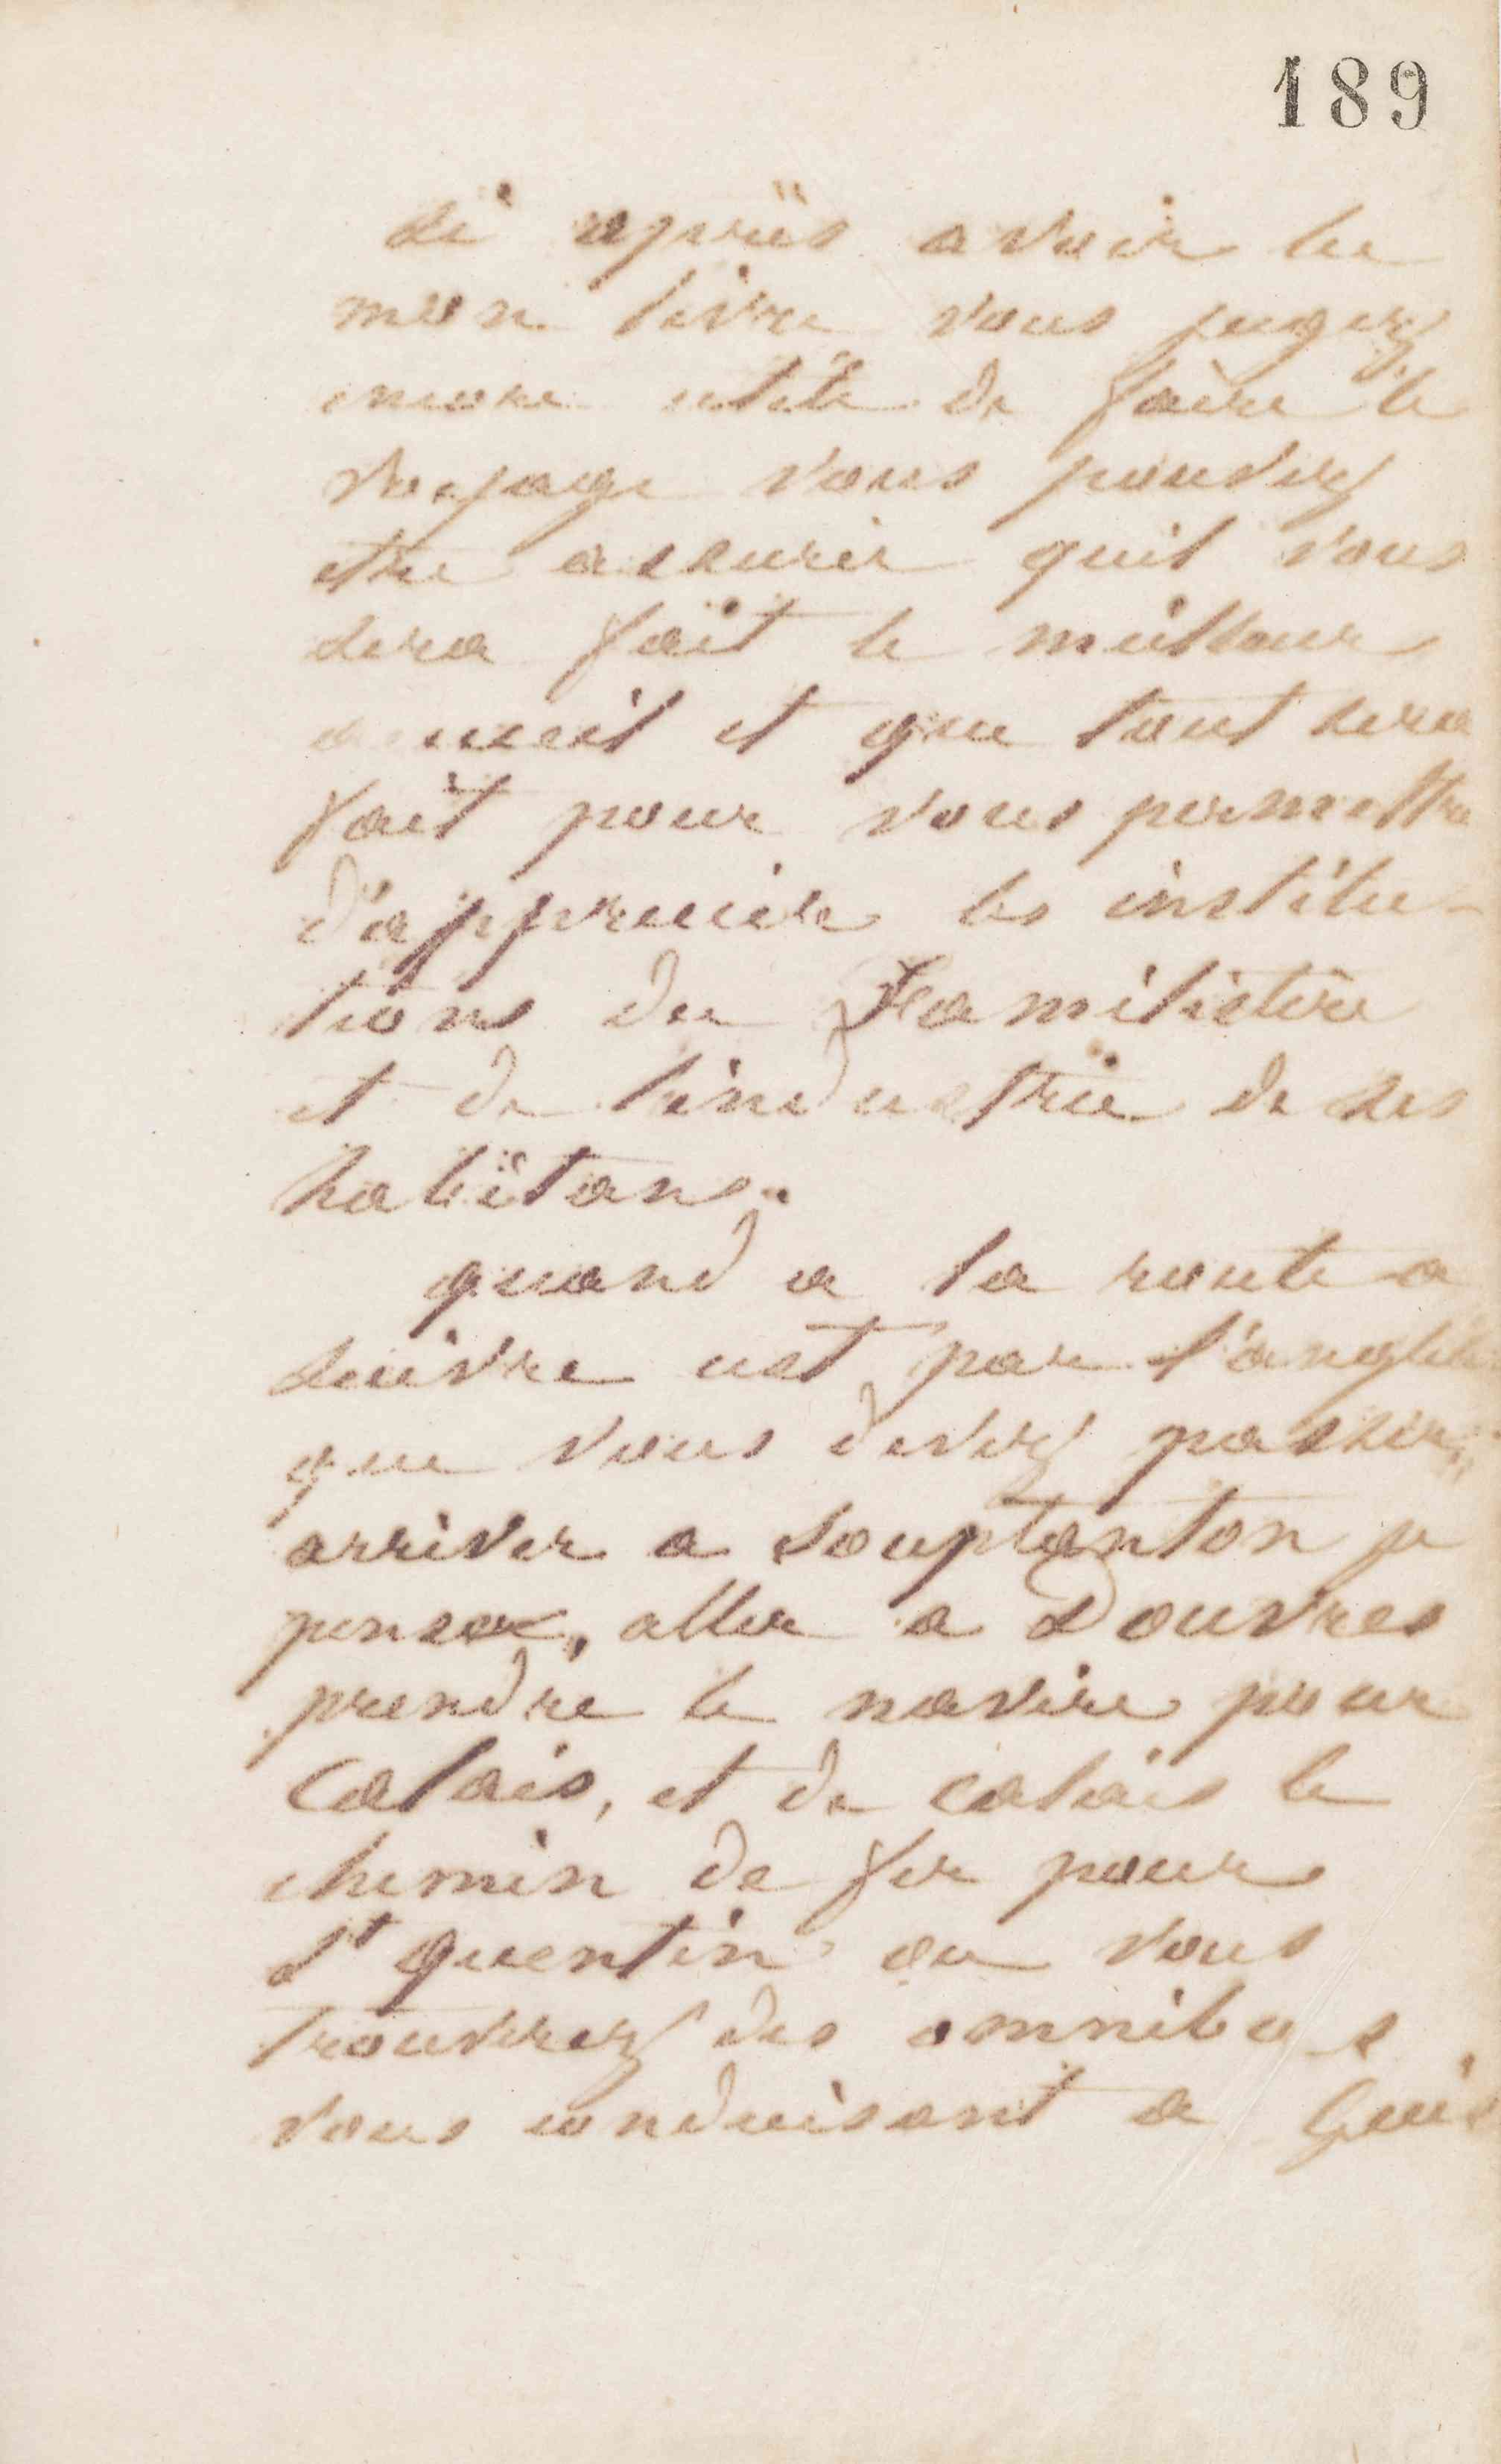 189
si après avoir lu
mon livre vous jugez
encore utile de faire le
voyage vous pouvez
etre assurer quil vous
sera fait le meilleur
acueil et que tout sera
fait pour vous permettre
d'apprecier les institu-
tions du Familistère
et de lindustrie de ses
habitans.
quand a la route a
suivre cest par l'angleter
que vous devez passer,
arriver a Souptanton je
pense, aller a Douvres
prendre le navire pour
Calais, et de calais le
chemin de fer pour
St quentin ou vous
trouverez des omnibus
vous conduisant a Guis